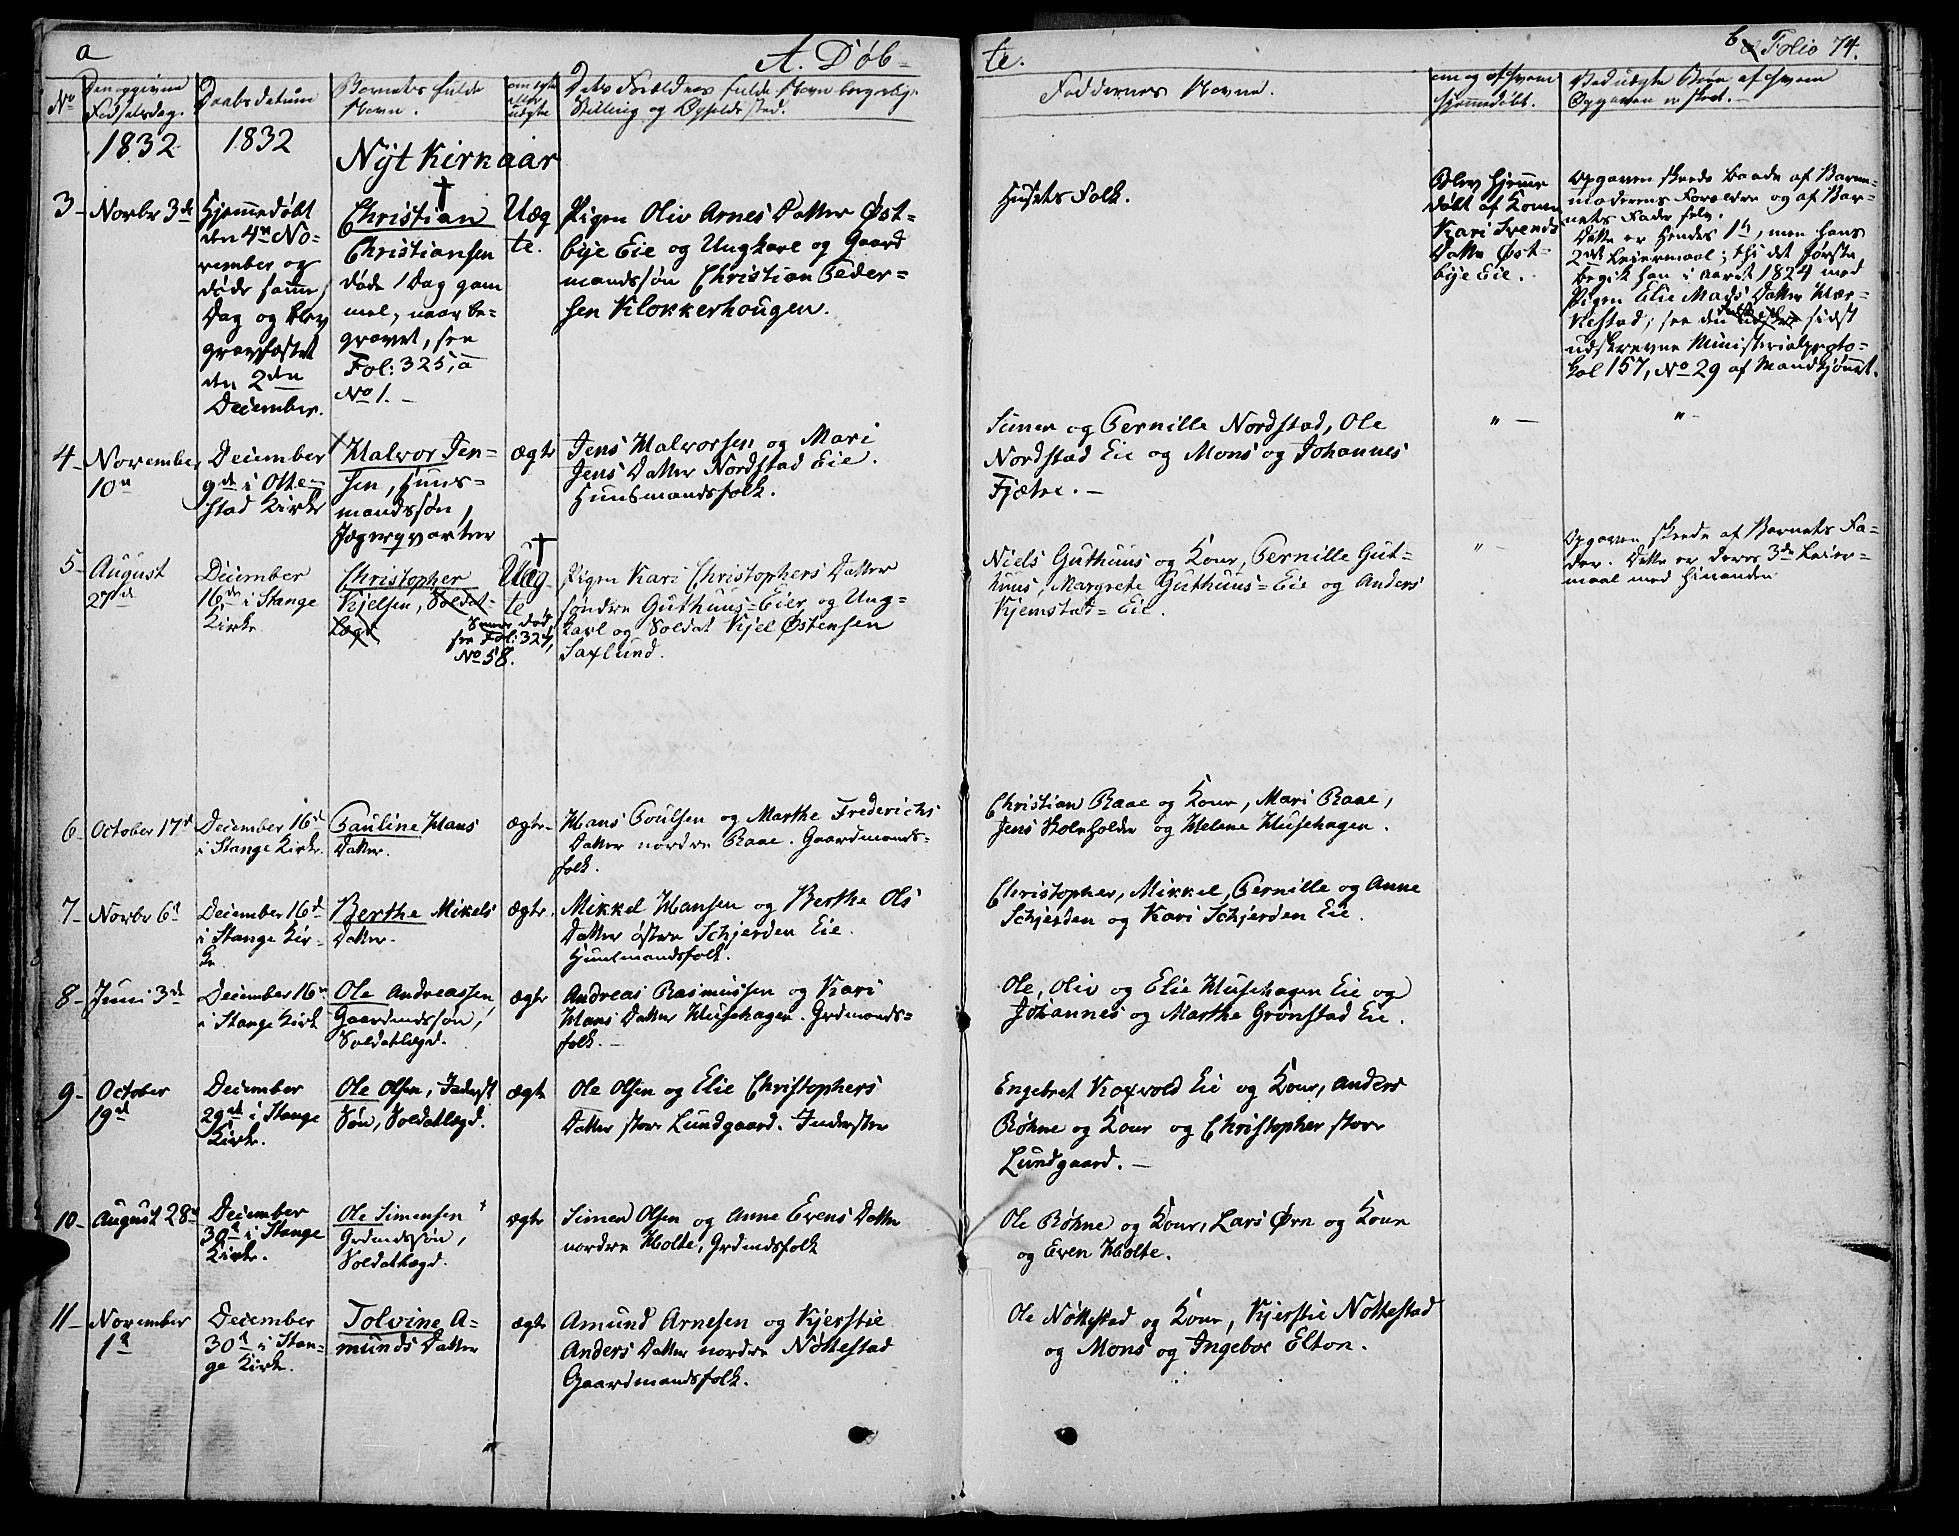 a
A. Døb-
te.
b Folio 74.
No
Den opgivne
Fødselsdag.
Daabsdatum
Barnets fulde
Navn.
om ægte
eller
uægte
Dets Forældres fulde Navn borgerlige
Stilling og Opholdssted.
Faddernes Navne.
om og af hvem
hjemmedøbt.
Ved uægte Børn af hvem
Opgaven er skeet.
1832
1832
Nyt Kirkaar
3 -
Novbr 3de
Hjemmedøbt
den 4de No-
vember og
døde samme
Dag og blev
gravfæstet
den 2den
December.
Christian
Christiansen
døde 1 Dag gam
mel, naar be-
gravet, see
Fol: 325, a
No 1. -
Uæg
te.
Pigen Oliv Arnes Datter Øst-
bije Eie og Ungkarl og Gaard
mandssøn Christian Peder-
sen Klokkerhougen.
Husets Folk.
Blev hjemme
døbt af Konen
Kari Svends
Datter Øst-
bije Eie.
Opgaven skeede baade af Barne-
moderens Forældre og af Bar-
nets Fader selv.
Dette er Hendes 1ste, men hans
2det Leiermaal; thi det første
begik han i Aaret 1824 med
Pigen Elie Mads Datter
see den sidst
udskrevne Ministerialproto-
kol 157, No 29 af Mandkjønnet.
4 -
November
10de
December
9de i Otte-
stad Kirke
Halvor Jen-
sen, Huus-
mandssøn,
Jægerqvarteer
ægte
Jens Halvorsen og Mari
Jens Datter Nordstad Eie.
Huusmandsfolk.
Simen og Pernille Nordstad, Ole
Nordstad Eie og Mons og Johannes
Fjætre. -
" -
" -
5 -
August
27de
December
16de i Stange
Kirke
Christopher
Kjelsen, Soldat-
lægd
Senere død,
see Fol: 324,
No 58.
Uæg
te
Pigen Kari Christophers Datter
søndre Guthuus=Eier og Ung-
karl og Soldat Kjel Østensen
Saxlund.
Niels Guthuus og Kone, Pernille Gut-
huus, Margrete Guthuus=Eie og Anders
Kjemstad=Eie.
" -
Opgaven skeede af Barnets Fa-
der. Dette er deres 3die Leier-
maal med hinanden
6 -
October 17de
December 16de
i Stange Kirke.
Pauline Hans
Datter.
ægte -
Hans Poulsen og Marthe Frederichs
Datter nordre Raae. Gaardmands-
folk.
Christian Raae og Kone, Mari Raae,
Jens og Helene Husehagen.
7 -
Novbr 6te
December 16de
i Stange Kir-
ke
Berthe Mikels
Datter.
ægte.
Mikkel Hansen og Berthe Ols
Datter østre Schjerden Eie.
Huusmandsfolk.
Christopher, Mikkel, Pernille og Anne
Schjerden og Kari Schjerden Eie.
8 -
Juni 3de
December 16de
i Stange Kirke
Ole Andreassen,
Gaardmdssøn,
Soldatlægd.
ægte
Andreas Rasmussen og Kari
Hans Datter Husehagen. Grdmands-
folk. -
Ole, Oliv og Elie Husehagen Eie og
Johannes og Marthe Grønstad Eie.
9 -
October
19de
December
29de i Stange
Kirke.
Ole Olsen, Inderst
Søn, Soldatlægd.
ægte
Ole Olsen og Elie Christophers
Datter store Lundgaard. Inderster
Engebret Koxvold Eie og Kone, Anders
Røhne og Kone og Christopher store
Lundgaard. -
10 -
August 28de
December
30te i Stange
Kirke.
Ole Simensen
Grdmdssøn,
Soldatlægd.
ægte
Simen Olsen og Anne Evens Datter
nordre Holte, Grdmdsfolk
Ole Røhne og Kone, Lars Ørn og Kone
og Even Holte.
11 -
November
1ste
December
30te i Stan-
ge Kirke.
Tolvine A-
munds Datter
ægte
Amund Arnesen og Kjerstie
Anders Datter nordre Nøttestad
Gaardmandsfolk.
Ole Nøttestad og Kone, Kjerstie Nøttestad
og Mons og Ingebor Elton.